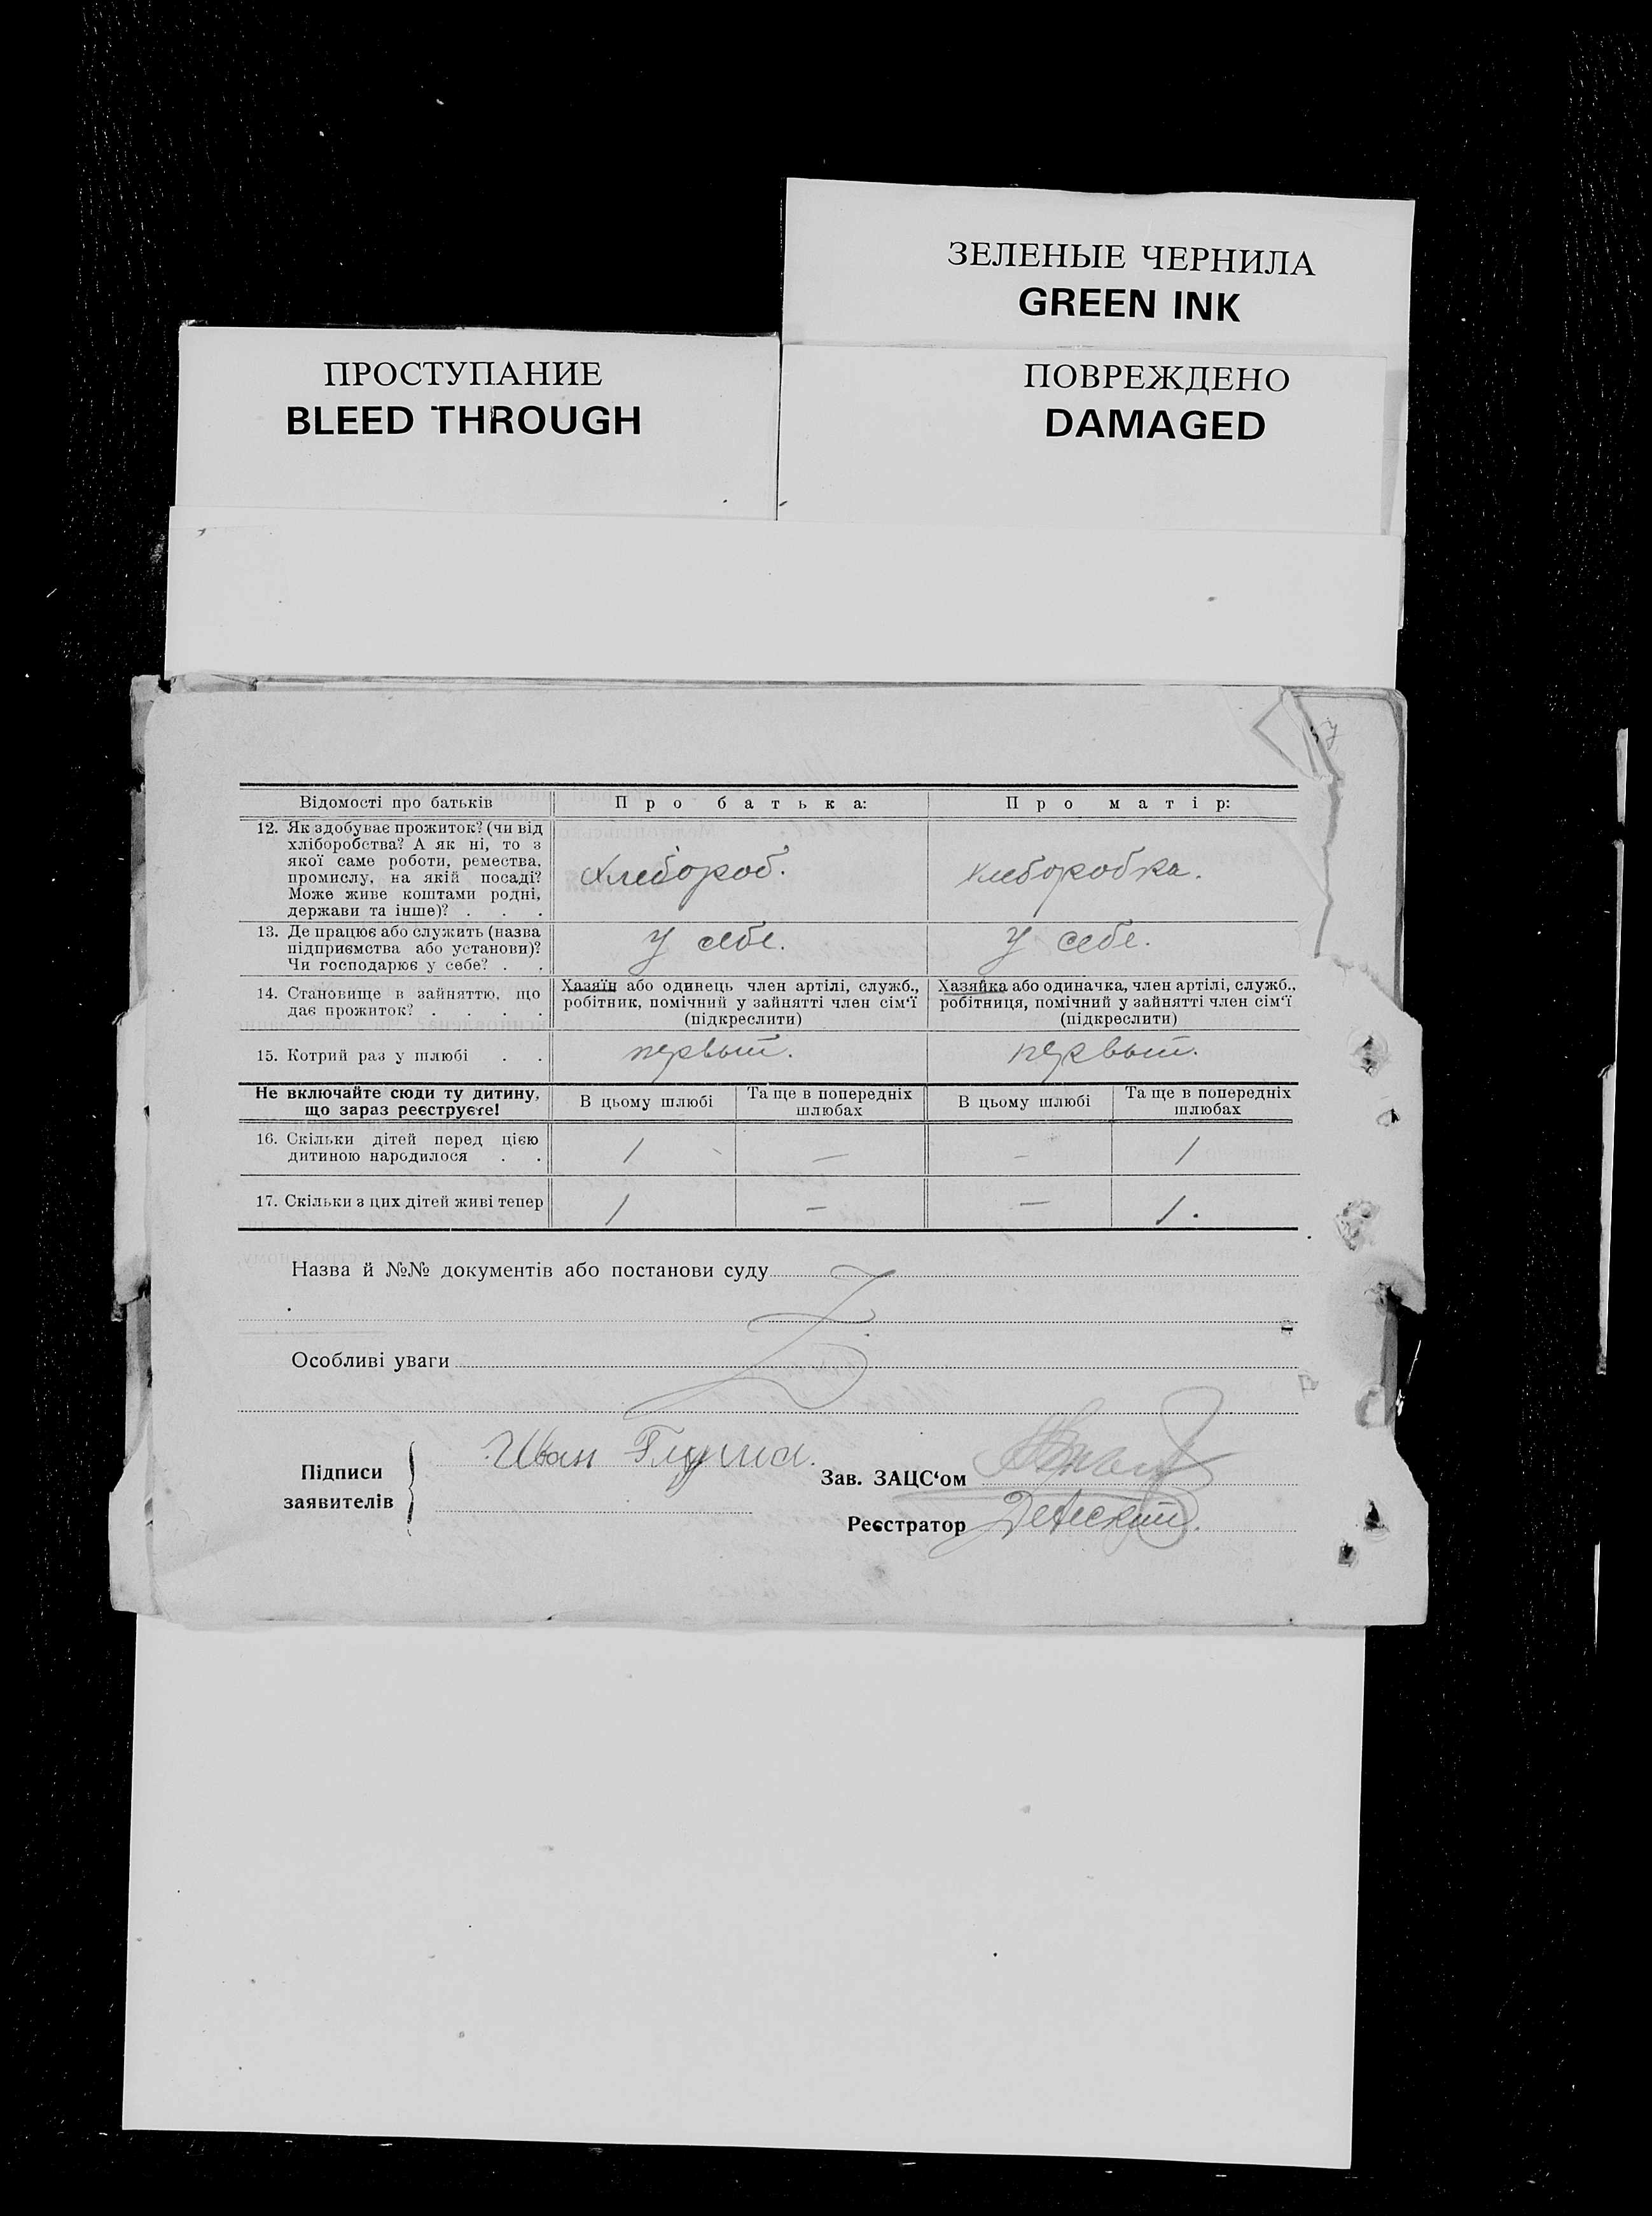 ЗЕЛЕНЫЕ ЧЕРНИЛА
GREEN INK
ПРОСТУПАНИЕ
BLEED THROUGH
ПОВРЕЖДЕНО
DAMAGED
Відомості про батьків
Про батька:
Про матір:
12. Як здобуває прожиток? (чи від
хліборобства? А як ні, то з
якої саме роботи, ремества,
промислу, на якій посаді?
Може живе коштами родні,
держави та інше)? . . .
Хлебороб.
Хлеборобка.
13. Де працює або служить (назва
підприємства або установи)?
Чи господарює у себе? . .
У себе.
У себе.
14. Становище в зайняттю, що
дає прожиток? . . . .
Хазяїн або одинець член артілі, служб.,
робітник, помічний у зайнятті член сім'ї
(підкреслити)
Хазяйка або одиначка, член артілі, служб.,
робітниця, помічний у зайнятті член сім'ї
(підкреслити)
15. Котрий раз у шлюбі . .
первый.
первый.
Не включайте сюди ту дитину,
що зараз реєструєте!
В цьому шлюбі
Та ще в попередніх
шлюбах
В цьому шлюбі
Та ще в попередніх
шлюбах
16. Скільки дітей перед цією
дитиною народилося . .
1
—
–
1
17. Скільки з цих дітей живі тепер
1
–
—
1.
Назва й №№ документів або постанови суду
Особливі уваги
Підписи
заявителів
Иван
Зав. ЗАЦС'ом
Реєстратор